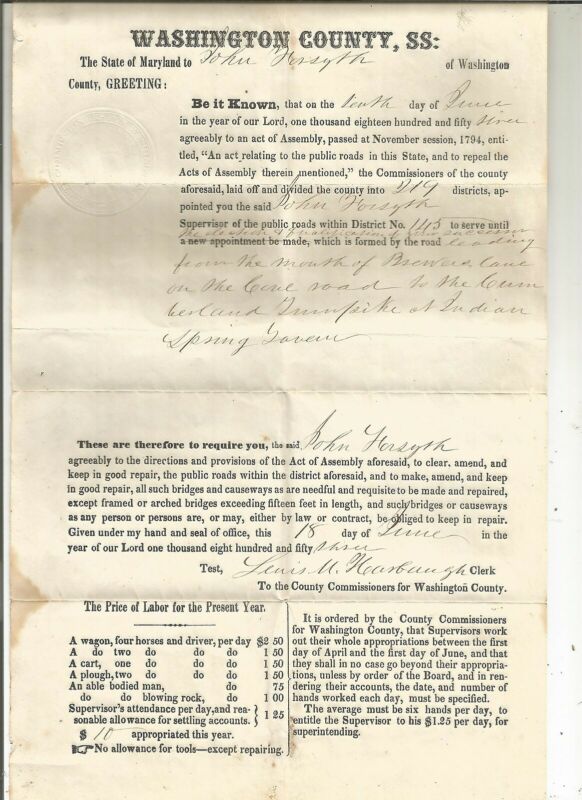 WASHINGTON COUNTY, SS:
The State of Maryland to John Forsyth of Washington
County, GREETING:
Be it Known, that on the tenth day of June
in the year of our Lord, one thousand eighteen hundred and fifty three
agreeably to an act of Assembly, passed at November session, 1794, enti-
tled, "An act relating to the public roads in this State, and to repeal the
Acts of Assembly therein mentioned," the Commissioners of the county
aforesaid, laid off and divided the county into 219 districts, ap-
pointed you the said John Forsyth
Supervisor of the public roads within District No. 145 to serve until
the election & qualification of your successor
a new appointment be made, which is formed by the road leading
from the mouth of Brewers lane
on the Cove road to the Cum
berland Turnpike at Indian
Spring Tavern
These are therefore to require you, the said, John Forsyth
agreeably to the directions and provisions of the Act of Assembly aforesaid, to clear, amend, and
keep in good repair, the public roads within the district aforesaid, and to make, amend, and keep
in good repair, all such bridges and causeways as are needful and requisite to be made and repaired,
except framed or arched bridges exceeding fifteen feet in length, and such bridges or causeways
as any person or persons are, or may, either by law or contract, be obliged to keep in repair.
Given under my hand and seal of office, this 18 day of June in the
year of our Lord one thousand eight hundred and fifty three
Test, Lewis M. Harbaugh Clerk
To the County Commissioners for Washington County.
The Price of Labor for the Present Year.
A wagon, four horses and driver, per day $2 50
A do two do do do 1 50
A cart, one do do do 1 50
A plough, two do do do 1 50
An able bodied man, do 75
do do blowing rock, do 1 00
Supervisor's attendance per day, and rea-
sonable allowance for settling accounts. } 1 25
$ 10 appropriated this year.
☞No allowance for tools—except repairing.
It is ordered by the County Commissioners
for Washington County, that Supervisors work
out their whole appropriations between the first
day of April and the first day of June, and that
they shall in no case go beyond their appropria-
tions, unless by order of the Board, and in ren-
dering their accounts, the date, and number of
hands worked each day, must be specified.
The average must be six hands per day, to
entitle the Supervisor to his $1.25 per day, for
superintending.